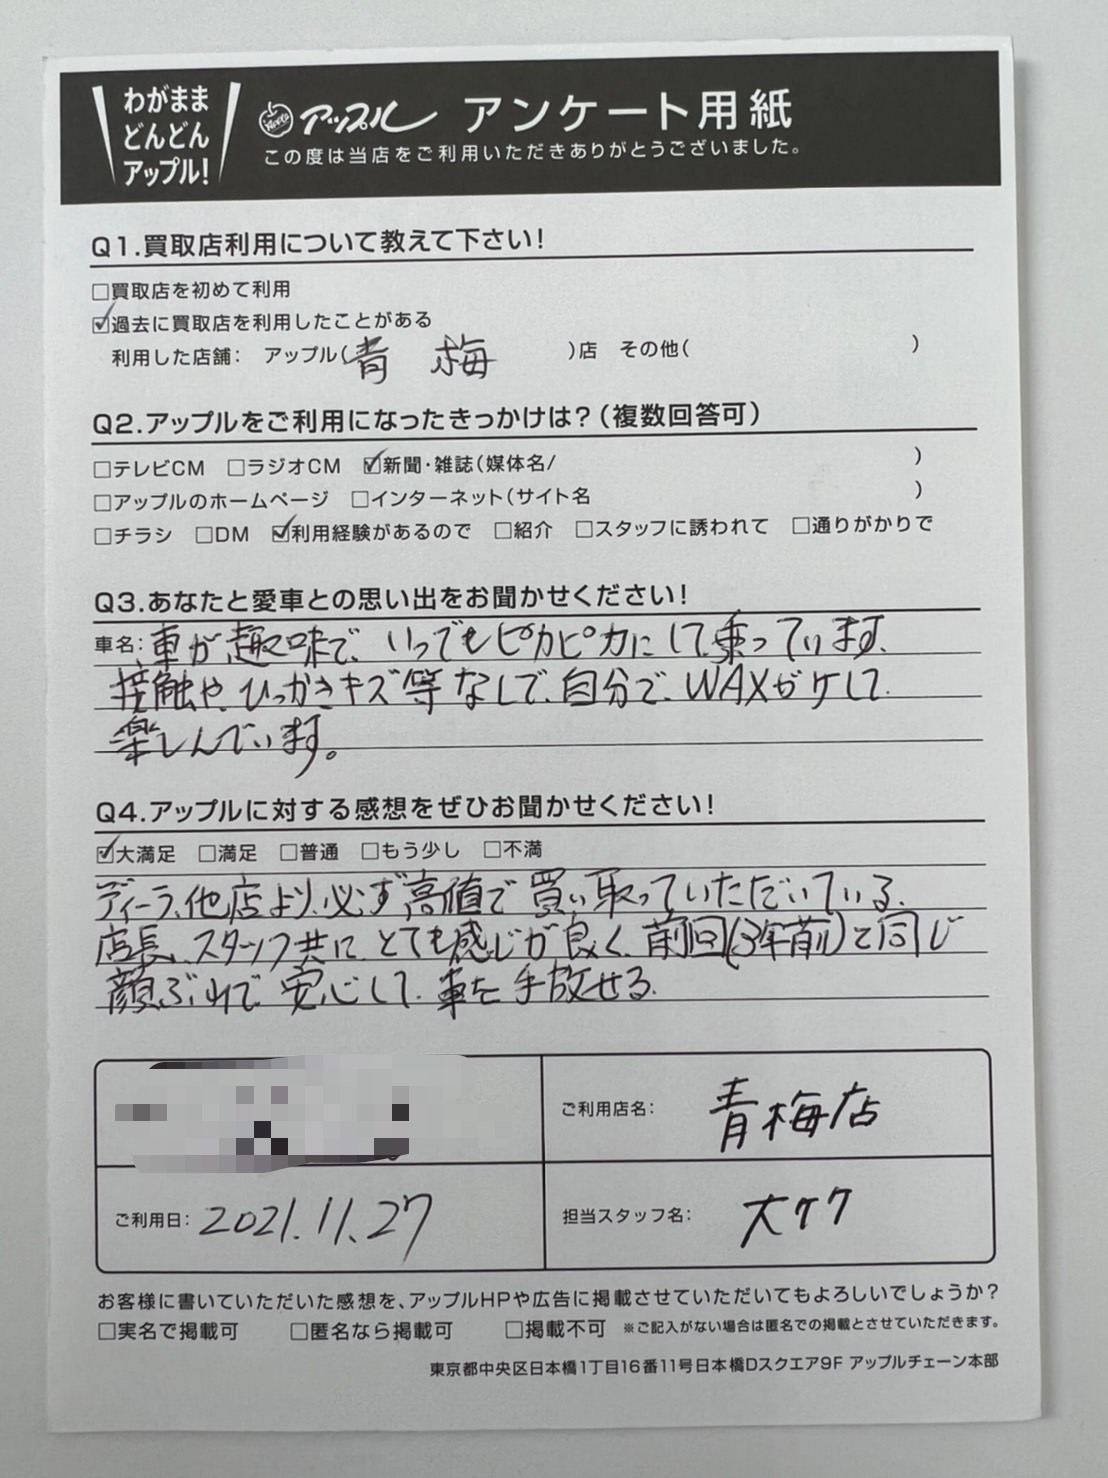 わがまま
どんどん
アップル!
アップル アンケート用紙
この度は当店をご利用いただきありがとうございました。
Q1.買取店利用について教えて下さい!
□買取店を初めて利用
☑過去に買取店を利用したことがある
利用した店舗: アップル(青 梅 )店 その他( )
Q2.アップルをご利用になったきっかけは?(複数回答可)
□テレビCM □ラジオCM ☑新聞・雑誌(媒体名/ )
□アップルのホームページ □インターネット(サイト名 )
□チラシ □DM ☑利用経験があるので □紹介 □スタッフに誘われて □通りがかりで
Q3.あなたと愛車との思い出をお聞かせください!
車名:車が趣味で、いつでもピカピカにして乗っています、
接触や、ひっかきキズ等なしで、自分で、WAXがケして
楽しんでいます。
Q4.アップルに対する感想をぜひお聞かせください!
☑大満足 □満足 □普通 □もう少し □不満
ディーラ、他店より、必ず、高値で買い取っていただいている、
店長、スタッフ共に、とても感じが良く、前回(3年前)と同じ
顔ぶれで、安心して、車を手放せる。
ご利用店名: 青梅店
ご利用日: 2021.11.27
担当スタッフ名: 大ケク
お客様に書いていただいた感想を、アップルHPや広告に掲載させていただいてもよろしいでしょうか?
□実名で掲載可 □匿名なら掲載可 □掲載不可 ※ご記入がない場合は匿名での掲載とさせていただきます。
東京都中央区日本橋1丁目16番11号日本橋Dスクエア9F アップルチェーン本部